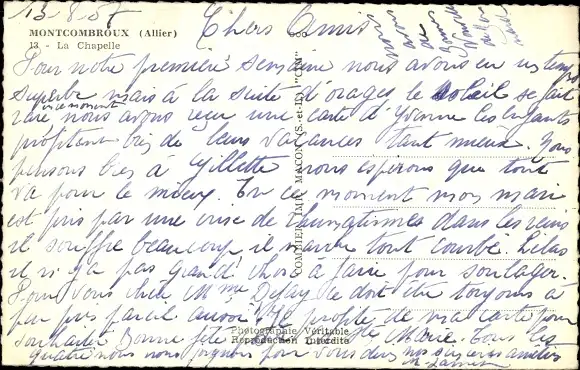 13.8.57
MONTCOMBROUX (Allier)
13 - La Chapelle
Chers Amis
nous avons de
Pour notre première semaine nous avons eu un temps
superbe mais à la suite d'orages le soleil se fait
rare en ce moment nous avons reçu une carte d'Yvonne les enfants
profitent bien de leurs vacances tant mieux. Nous
pensons bien à Gillette nous espérons que tout
va pour le mieux. En ce moment mon mari
est pris par une crise de rhumatismes dans les reins
il souffre beaucoup il marche tout courbé. Hélas
il n'y a pas grand chose à faire pour soulager.
Pour vous cher Mme Defay ce doit être toujours à
peu près pareil aussi. Je profite de ma carte pour
souhaiter Bonne fête Ste Marie. Tous les
quatre nous nous joignons pour vous deux nos sincères amitiés
COMBIER IMP. MACON (S.-et-L.) "CIM"
Photographie Véritable
Reproduction Interdite